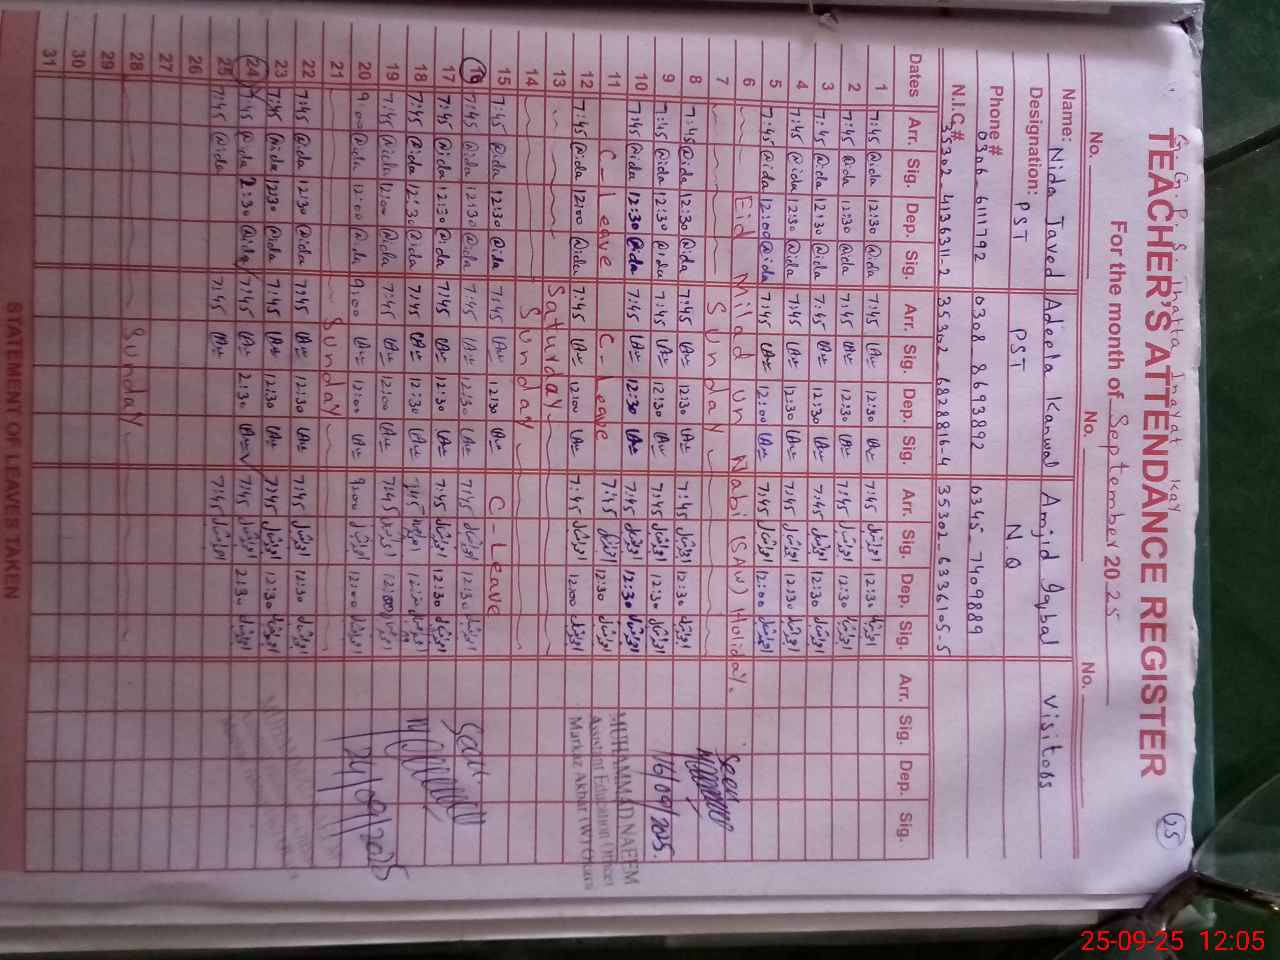 35
G.G.P.S. Jhatta Inayat Kay
TEACHER'S ATTENDANCE REGISTER
For the month of September 2025
No. No. No.
Name: Nida Javed Adeela Kanwal Amjid Iqbal Visitors
Designation: PST PST N.Q
Phone# 0306-6111792 0308-8693892 0345-7409889
N.I.C# 35302-4136311-2 35302-6828816-4 35302-6336105-5
Dates Arr. Sig. Dep. Sig. Arr. Sig. Dep. Sig. Arr. Sig. Dep. Sig. Arr. Sig. Dep. Sig.
1 7:45 @ida 12:30 @ida 7:45 12:30 7:45 12:30
2 7:45 @ida 12:30 @ida 7:45 12:30 7:45 12:30
3 7:45 @ida 12:30 @ida 7:45 12:30 7:45 12:30
4 7:45 @ida 12:30 @ida 7:45 12:30 7:45 12:30
5 7:45 @ida 12:00 @ida 7:45 12:00 7:45 12:00
6 Eid Mild un Nabi (SAW) Holiday.
7 Sunday
8 7:45 @ida 12:30 @ida 7:45 12:30 7:45 12:30
9 7:45 @ida 12:30 @ida 7:45 12:30 7:45 12:30
10 7:45 @ida 12:30 @ida 7:45 12:30 7:45 12:30
11 C-Leave C-Leave 7:45 12:30
12 7:45 @ida 12:00 @ida 7:45 12:00 7:45 12:00
13 Saturday
14 Sunday
15 7:45 @ida 12:30 @ida 7:45 12:30 C-Leave
16 7:45 @ida 12:30 @ida 7:45 12:30 7:45 12:30
17 7:45 @ida 12:30 @ida 7:45 12:30 7:45 12:30
18 7:45 @ida 12:30 @ida 7:45 12:30 7:45 12:30
19 7:45 @ida 12:00 @ida 7:45 12:00 7:45 12:00
20 9:00 @ida 12:00 @ida 9:00 12:00 9:00 12:00
21 Sunday
22 7:45 @ida 12:30 @ida 7:45 12:30 7:45 12:30
23 7:45 @ida 12:30 @ida 7:45 12:30 7:45 12:30
24 7:45 @ida 2:30 @ida 7:45 2:30 7:45 2:30
25 7:45 @ida 7:45 7:45
26
27
28 Sunday
29
30
31
Seen
16/09/2025.
MUHAMMAD NAEEM
Assistant Education Officer
Markaz Akhar (W) Okara
Seen
24/09/2025
STATEMENT OF LEAVES TAKEN
25-09-25 12:05